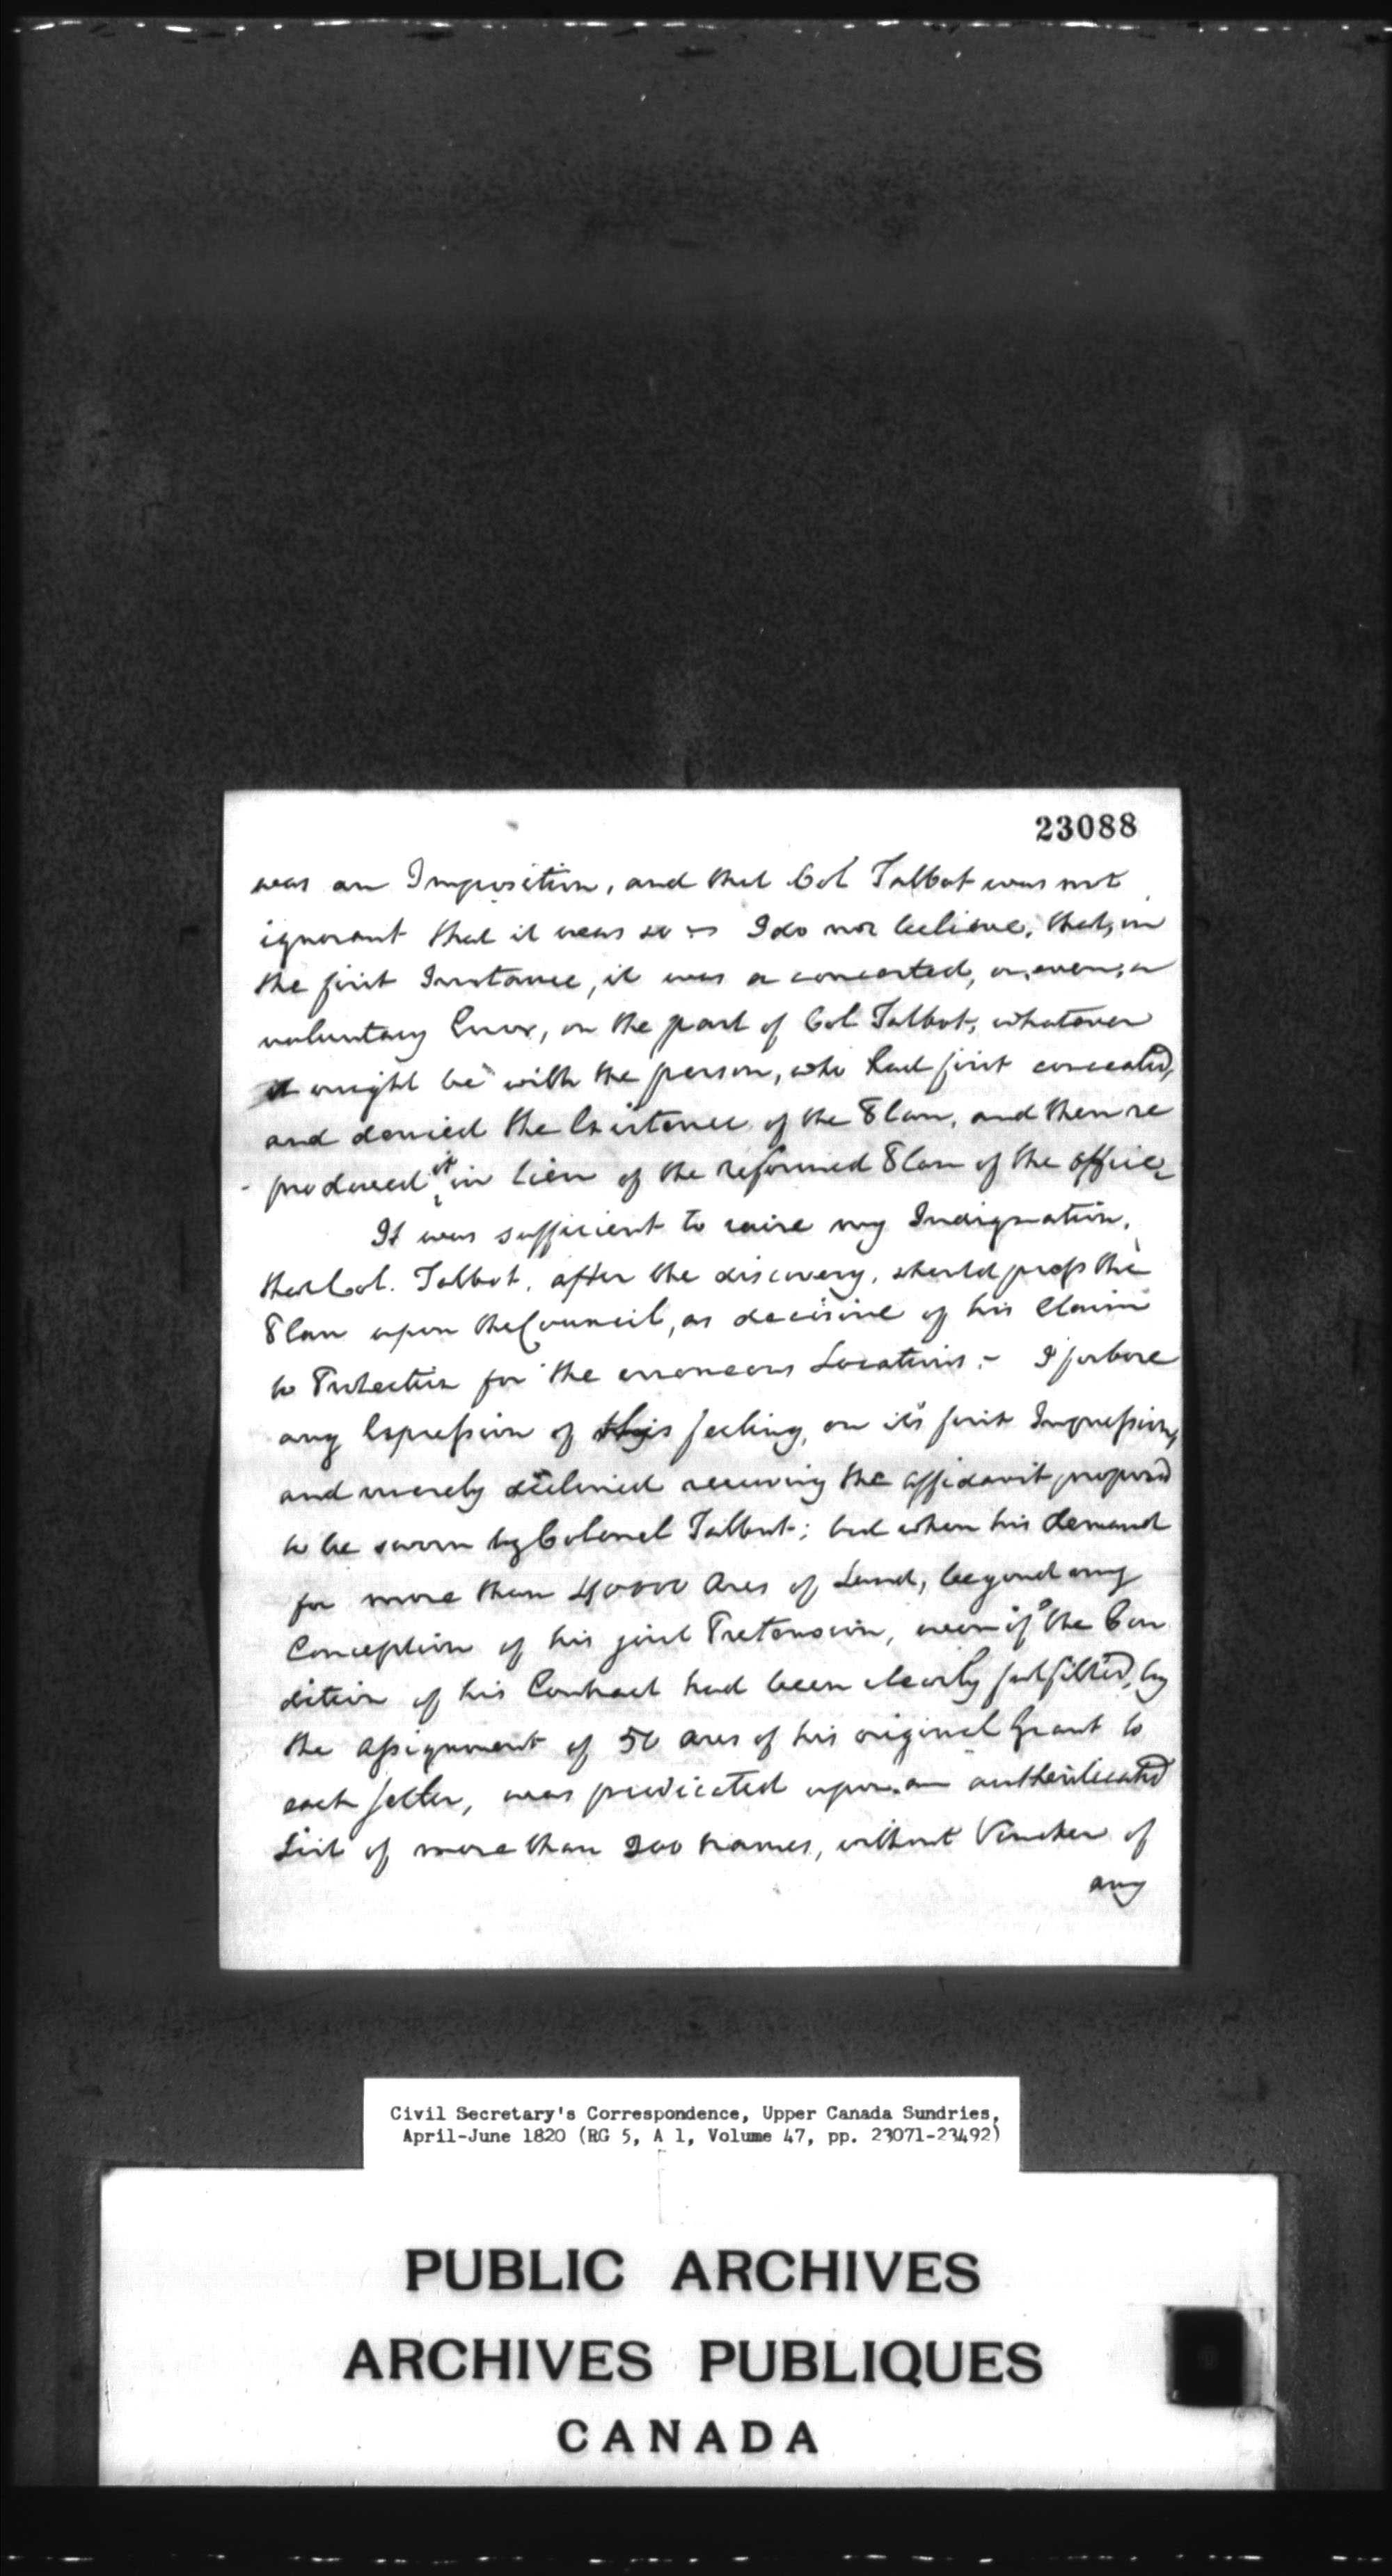 23088
was an Imposition, and that Col Talbot was not
ignorant that it was so :- I do not believe, that, in
the first Instance, it was a concerted, or, even, a
voluntary Error, on the part of Col Talbot, whatever
it might be with the person, who had first concealed,
and denied the Existence of the Plan, and then re
- produced it in lieu of the reformed Plan of the office
It was sufficient to raise my Indignation,
that Col. Talbot, after the discovery, should press the
Plan upon the Council, as decisive of his Claim
to Protection for the erroneous Locations :- I forbore
any Expression of this feeling, on it's first Impression,
and merely declined receiving the affidavit proposed
to be sworn by Colonel Talbot; but when his demand
for more than 40000 Acres of Land, beyond any
Conception of his just Pretension, even if the Con
dition of his Contract had been clearly fulfilled, by
the Assignment of 50 Acres of his original Grant to
each settler, was predicated upon an authenticated
List of more than 200 names, without Voucher of
any
Civil Secretary's Correspondence, Upper Canada Sundries,
April-June 1820 (RG 5, A 1, Volume 47, pp. 23071-23492)
PUBLIC ARCHIVES
ARCHIVES PUBLIQUES
CANADA